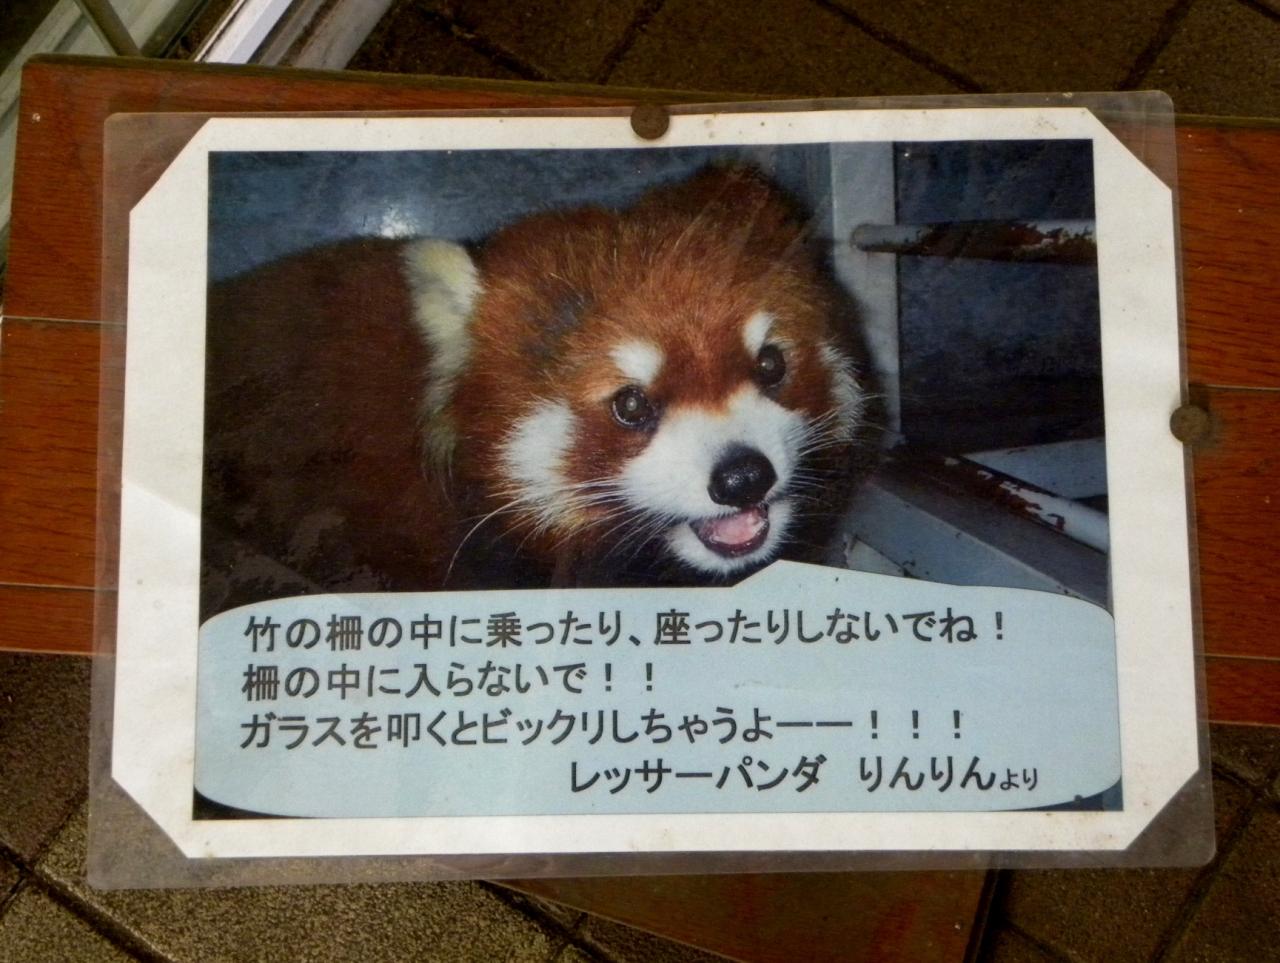 竹の柵の中に乗ったり、座ったりしないでね！
柵の中に入らないで！！
ガラスを叩くとビックリしちゃうよーー！！！
レッサーパンダ　りんりんより